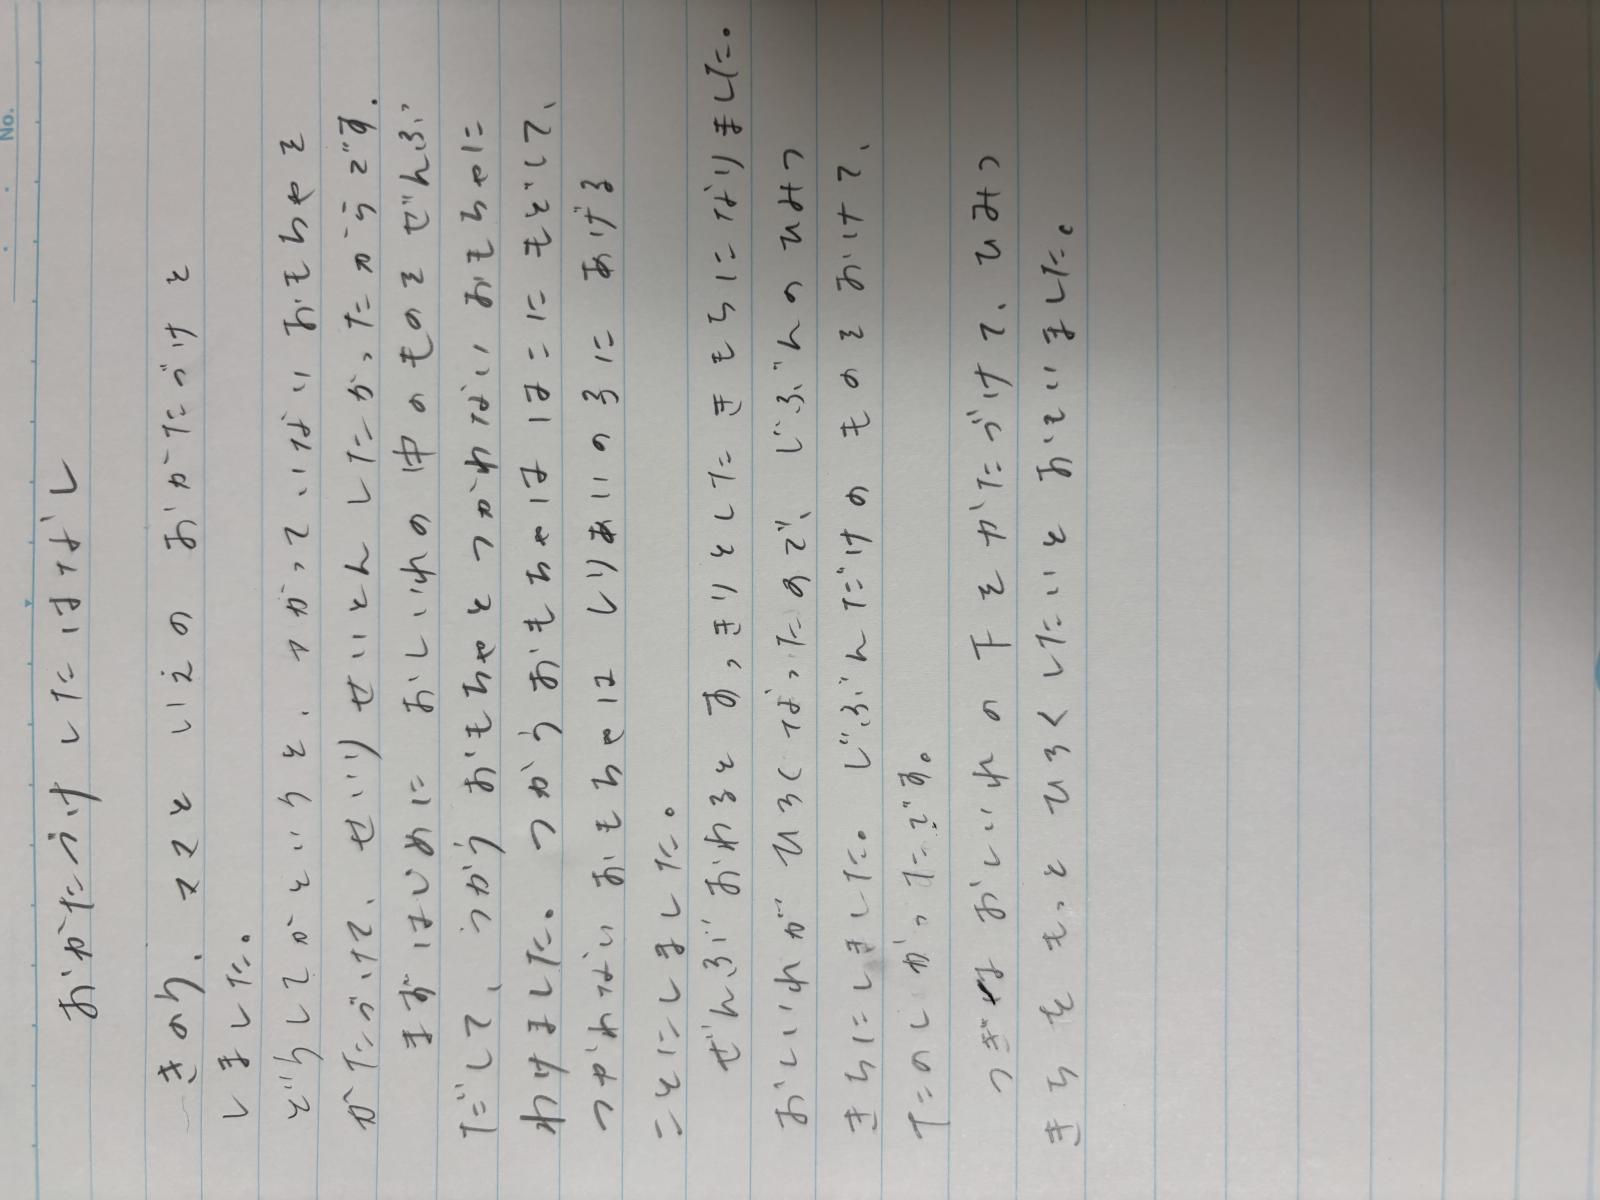 No.
おかたづけ したはなし
きのう、ママと いえの おかたづけを
しました。
どうしてかというと、つかっていない おもちゃを
かたづけて、せいりせいとん したかったからです。
まずはじめに おしいれの 中のものを ぜんぶ
だして、つかう おもちゃと つかわない おもちゃに
わけました。つかう おもちゃは はこに もどして、
つかわない おもちゃは しりあいの 子に あげる
ことにしました。
ぜんぶ おわると すっきりとした きもちに なりました。
おしいれが ひろくなったので、じぶんの ひみつ
きちにしました。じぶんだけの ものを おけて、
たのしかったです。
つぎは おしいれの 下を かたづけて、ひみつ
きちを もっと ひろくしたいと おもいました。